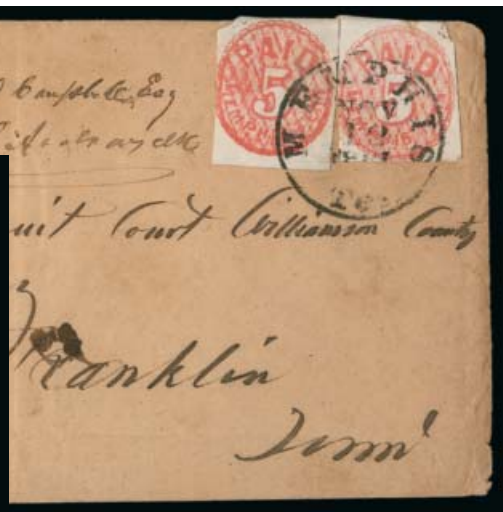 PAID 5 MEMPHIS
PAID 5
MEMPHIS
NOV
Ten
Campbell, Esq
uit Court Williamson County
Franklin
Tenn